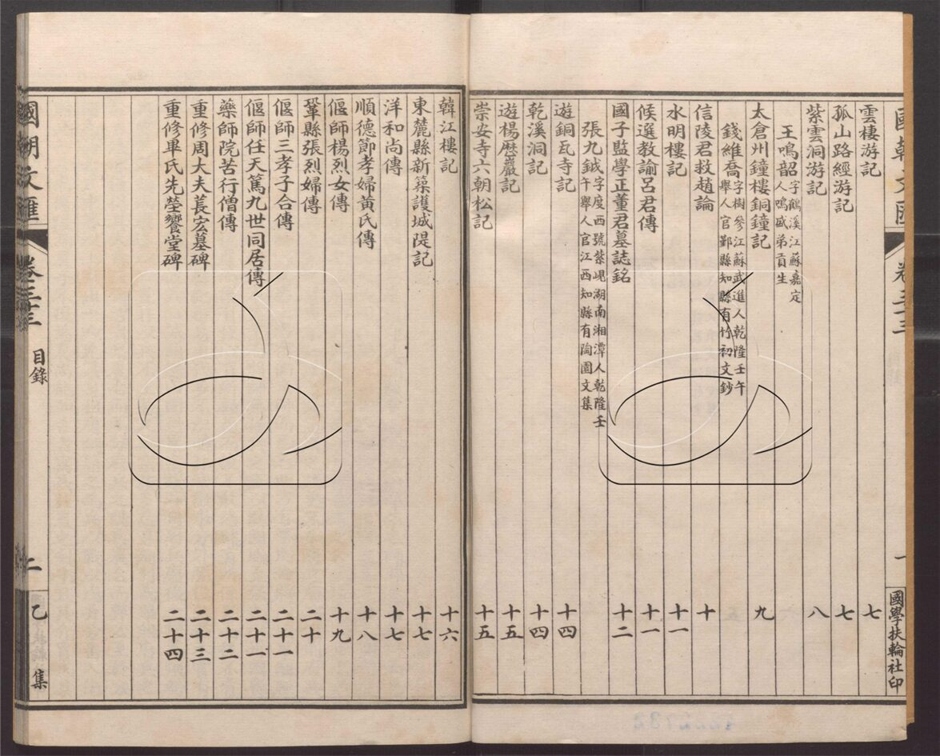 雲棲游記 七
孤山路經游記 七
紫雲洞游記 八
王鳴韶 字鶴溪江蘇嘉定人鳴盛弟貢生
太倉州鐘樓銅鐘記 九
錢維喬 字樹參江蘇武進人乾隆壬午舉人官鄞縣知縣有竹初文鈔
信陵君救趙論 十
水明樓記 十一
候選教諭呂君傳 十一
國子監學正董君墓誌銘 十二
張九鉞 字度西號紫峴湖南湘潭人乾隆壬午舉人官江西知縣有陶園文集
遊銅瓦寺記 十四
乾溪洞記 十四
遊楊歷巖記 十五
崇安寺六朝松記 十五
國學扶輪社印
韓江樓記 十六
東麓縣新築護城隄記 十七
洋和尚傳 十七
順德節孝婦黃氏傳 十八
偃師楊烈女傳 十九
鞏縣張烈婦傳 二十
偃師三孝子合傳 二十一
偃師任天篤九世同居傳 二十一
藥師院苦行僧傳 二十二
重修周大夫萇宏墓碑 二十三
重修畢氏先塋饗堂碑 二十四
國朝文匯 卷三十三 目錄 二 乙集